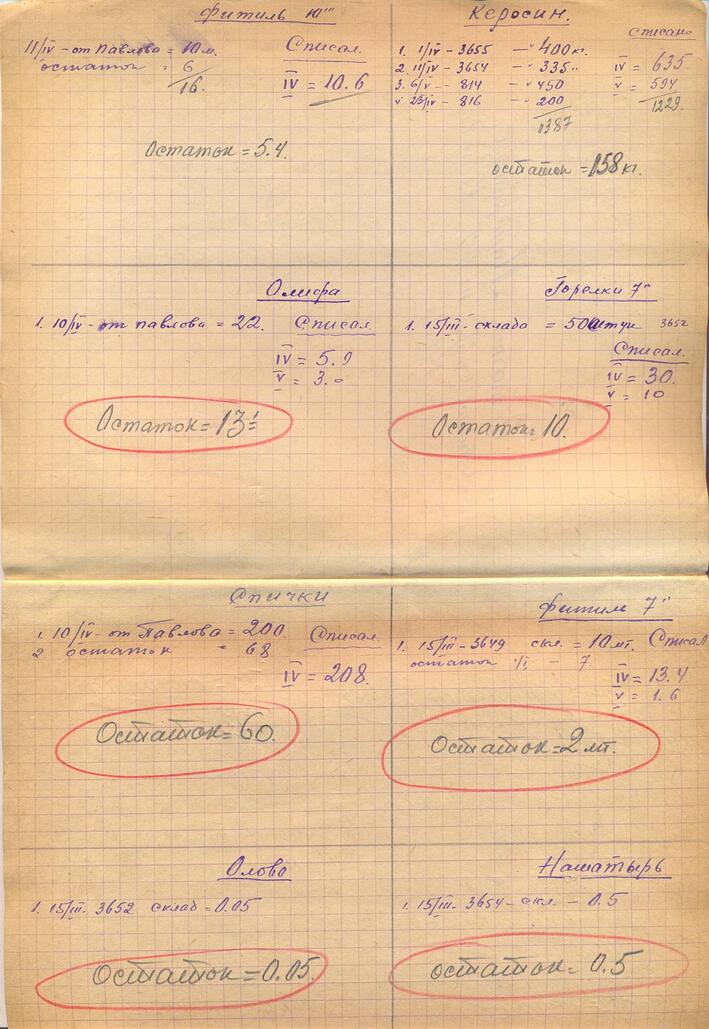 Фитиль 10'''
11/IV - от Павлова = 10 м.
остаток = 6
16.
Списал.
IV = 10.6
Остаток = 5.4.
Керосин.
списано
1. 1/IV - 3655 - " 400 кг.
2. 11/IV - 3654 - " 335 "
3. 6/V - 814 - " 450
v 23/IV - 816 - " 200
1387
IV = 635
V = 594
1229.
остаток = 158 кг.
Олифа
1. 10/IV - от Павлова = 22.
Списал
IV = 5.9
V = 3.0
Остаток = 13.1
Горелки 7"
1. 15/III - склада = 50 штук 3652
Списал.
IV = 30.
V = 10
Остаток = 10.
Спички
1. 10/IV - от Павлова = 200.
2 остаток = 68
Списал
IV = 208.
Остаток = 60.
Фитиле 7"
1. 15/III - 3649 скл. = 10 мт.
остаток 1/I - 7
Списал
IV = 13.4
V = 1.6
Остаток = 2 мт.
Олова
1. 15/III. 3652 склад = 0.05
Остаток = 0.05.
Нашатырь
1. 15/III - 3654 - скл. - 0.5
остаток = 0.5